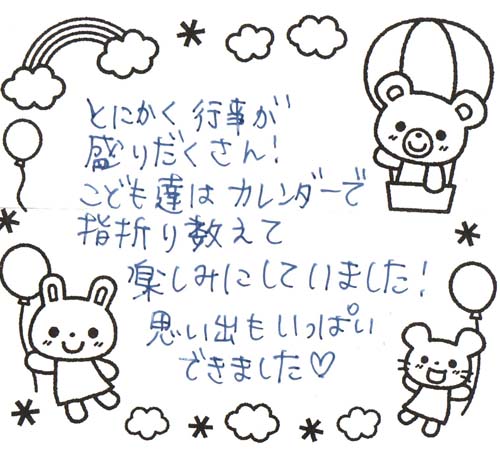 とにかく行事が
盛りだくさん!
こども達はカレンダーで
指折り数えて
楽しみにしていました!
思い出もいっぱい
できました♡